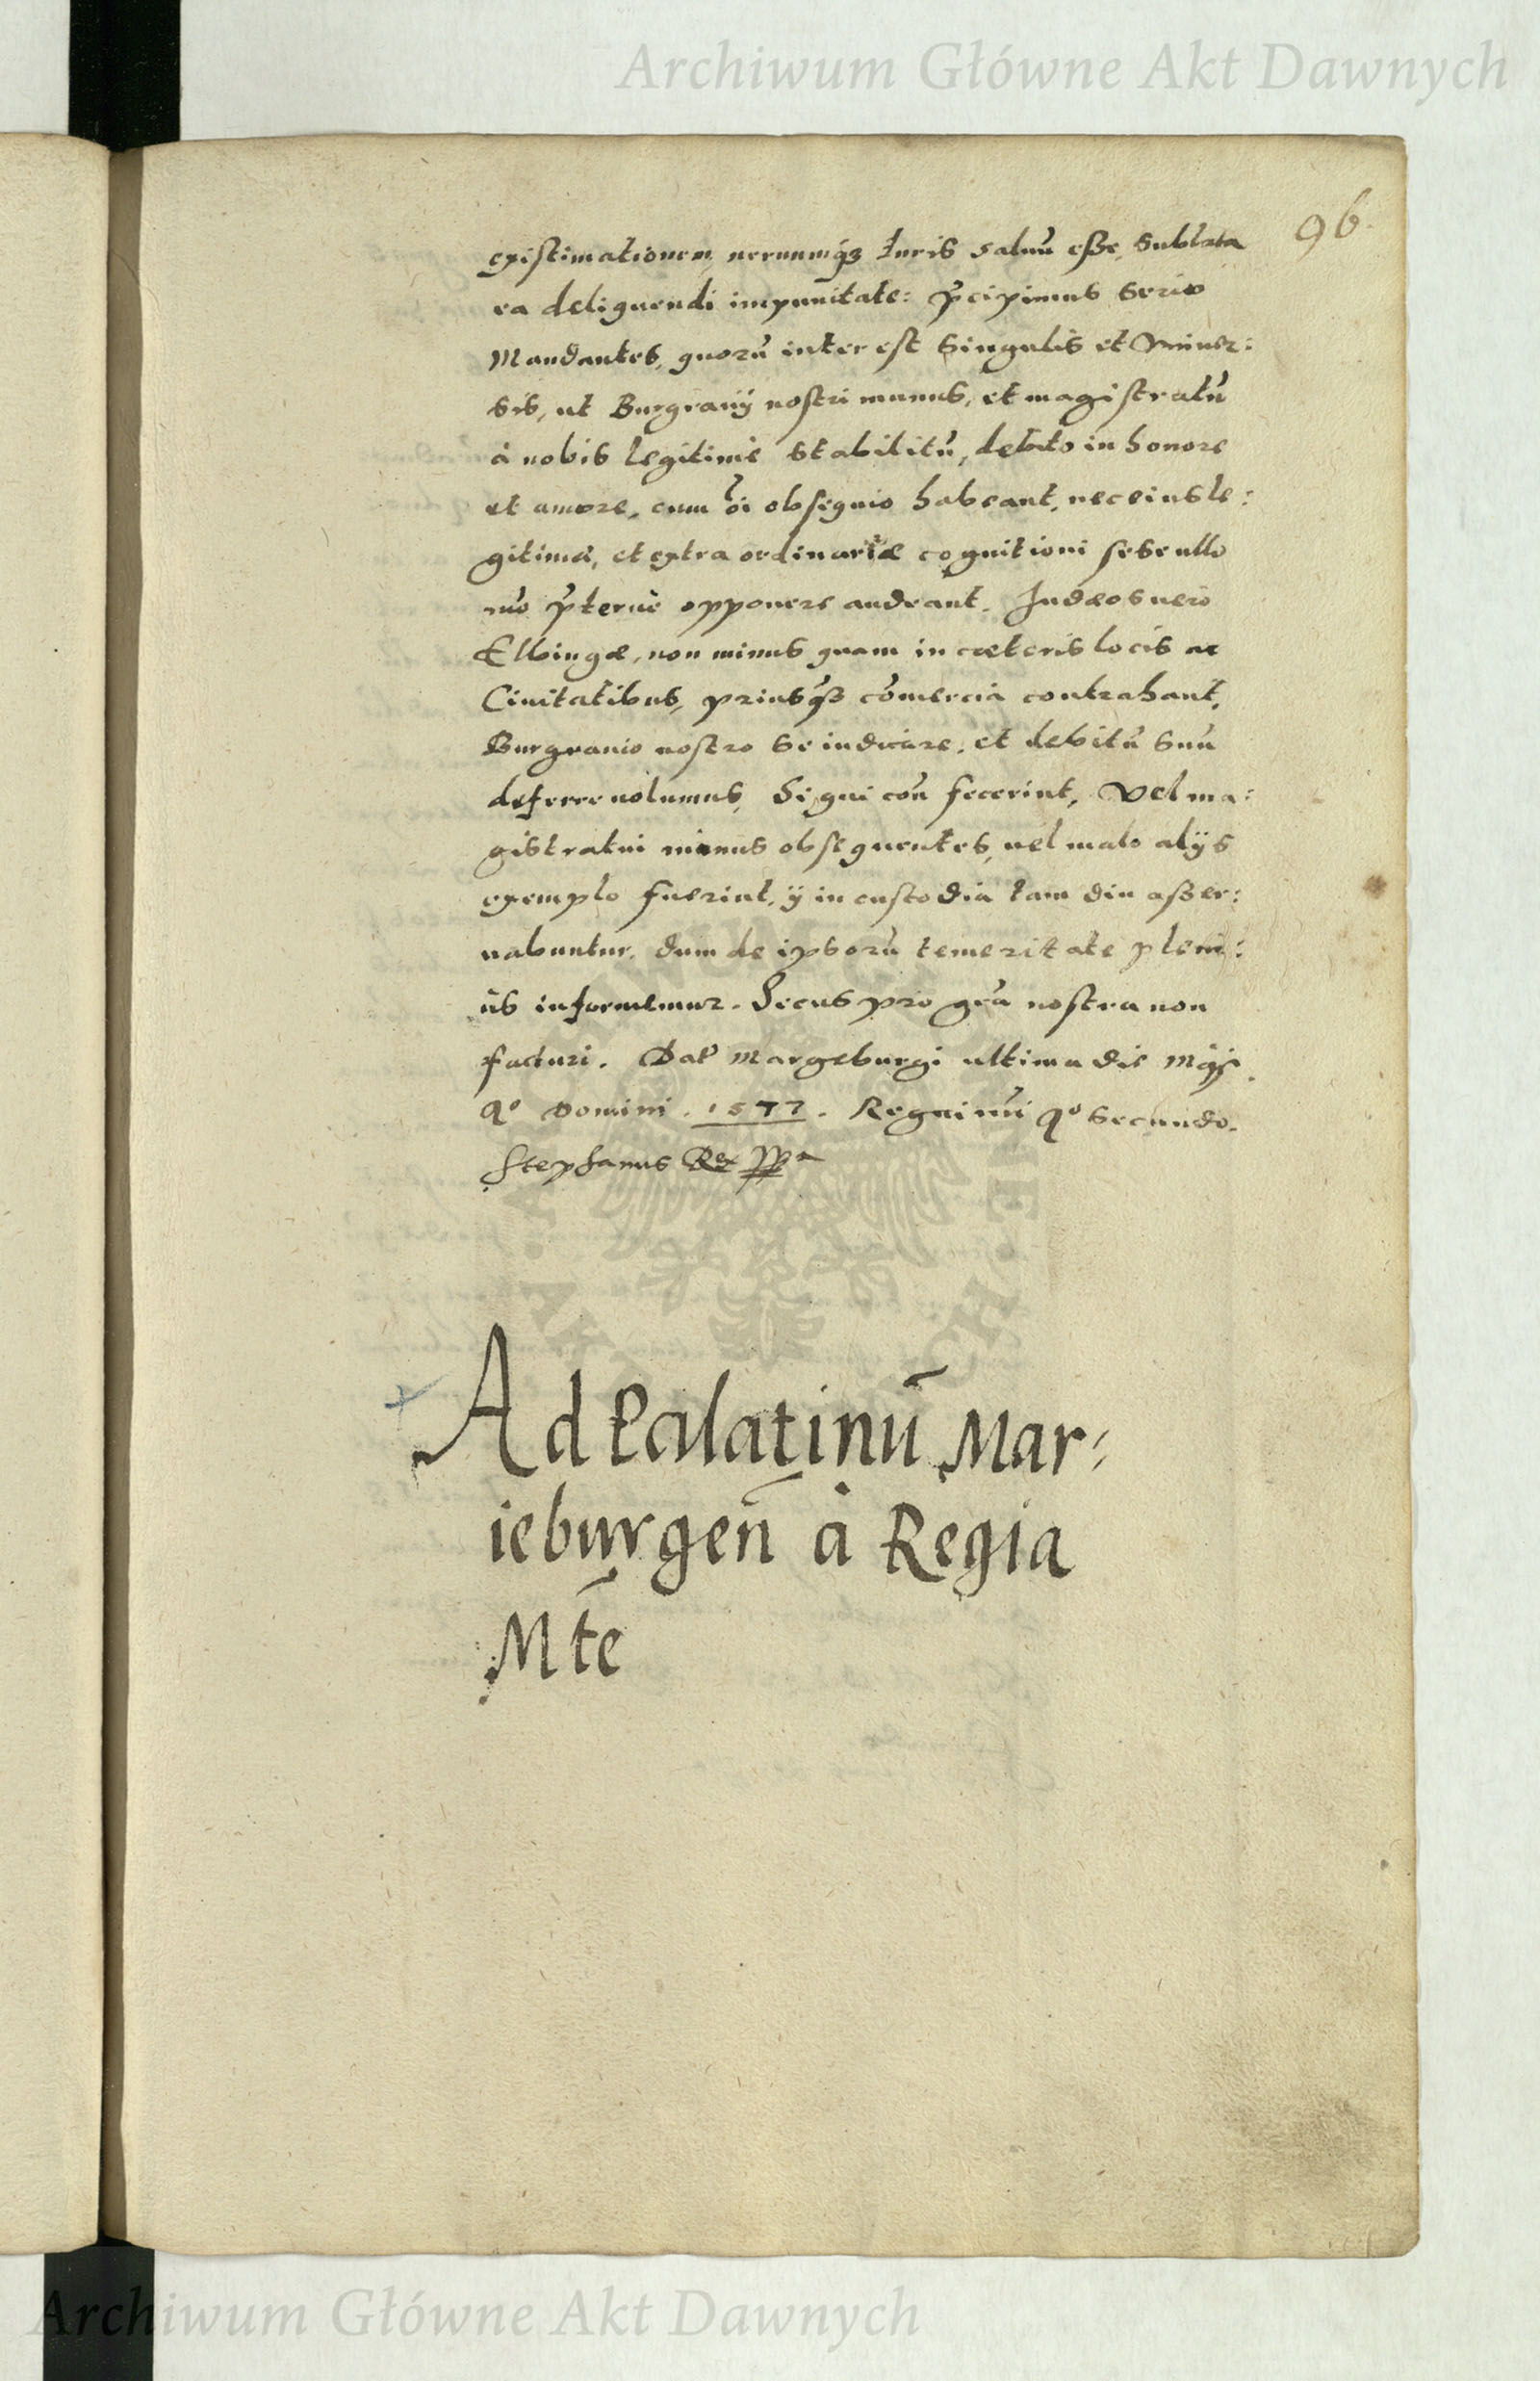 Archiwum Główne Akt Dawnych
96
existimationem, neruumq́ꝫ Iuris saluū eße, sublata
ea deliquendi impunitate: p̃cipimus serio
Mandantes, quorū interest singulis et Vniuer:
sis, ut Burgrauij nostri munus, et magistratū
à nobis legitimè stabilitū, debito in honore
et amore, cum õi obsequio habeant, nec eius le:
gitimæ, et extraordinariæ cognitioni sese ullo
mō p̃teruè opponere audeant. Iudæos uerò
Elbingæ, non minus quam in cæteris locis ac
Ciuitatibus, priusq̃ꝫ cōmercia contrahant,
Burgrauio nostro se indicare, et debitū suū
deferre uolumus, Si qui coñ fecerint, Vel ma:
gistratui minus obsequentes, uel malo alijs
exemplo fuerint, ij in custodia tam diu aßer:
uabuntur, dum de ipsorū temeritate pleni:
ùs informemur. Secus pro grã nostra non
facturi. Dat̃ Margeburgi ultima die
Aº Domini. 1577. Regni nr̃i Aº secundo.
Stephanus Rex
Ad Palatinū Mar:
ieburgeñ à Regia
Mt̃e
Archiwum Główne Akt Dawnych